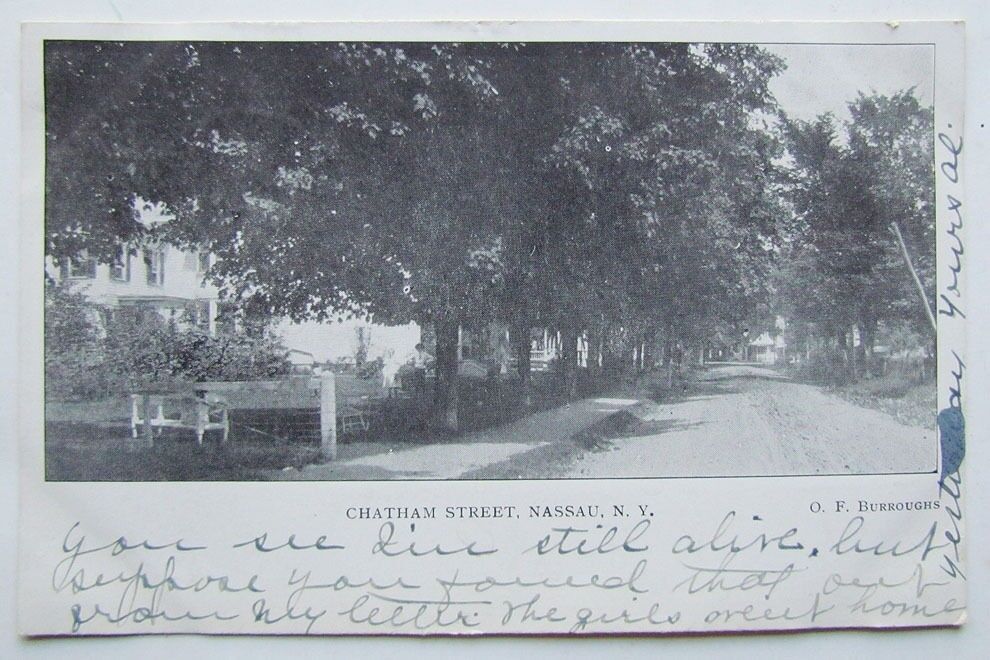 CHATHAM STREET, NASSAU, N. Y.
O. F. BURROUGHS
You see I'm still alive, but
suppose you found that out
from my letter. The girls went home
yesterday Yours Al.